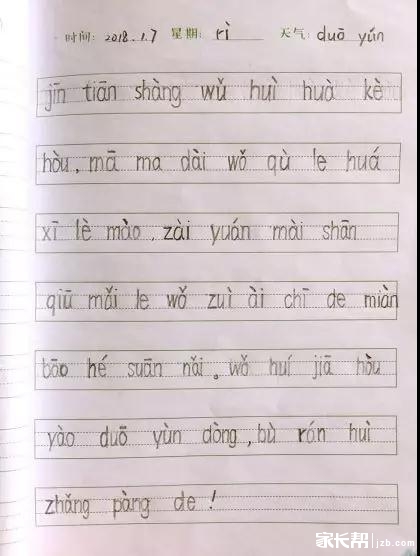 时间: 2018.1.7 星期: rì 天气: duō yún
jīn tiān shàng wǔ huì huà kè
hòu, mā ma dài wǒ qù le huá
xī lè mào, zài yuán mài shān
qiū mǎi le wǒ zuì ài chī de miàn
bāo hé suān nǎi。wǒ huí jiā hòu
yào duō yùn dòng, bù rán huì
zhǎng pàng de !
家长帮 jzb.com